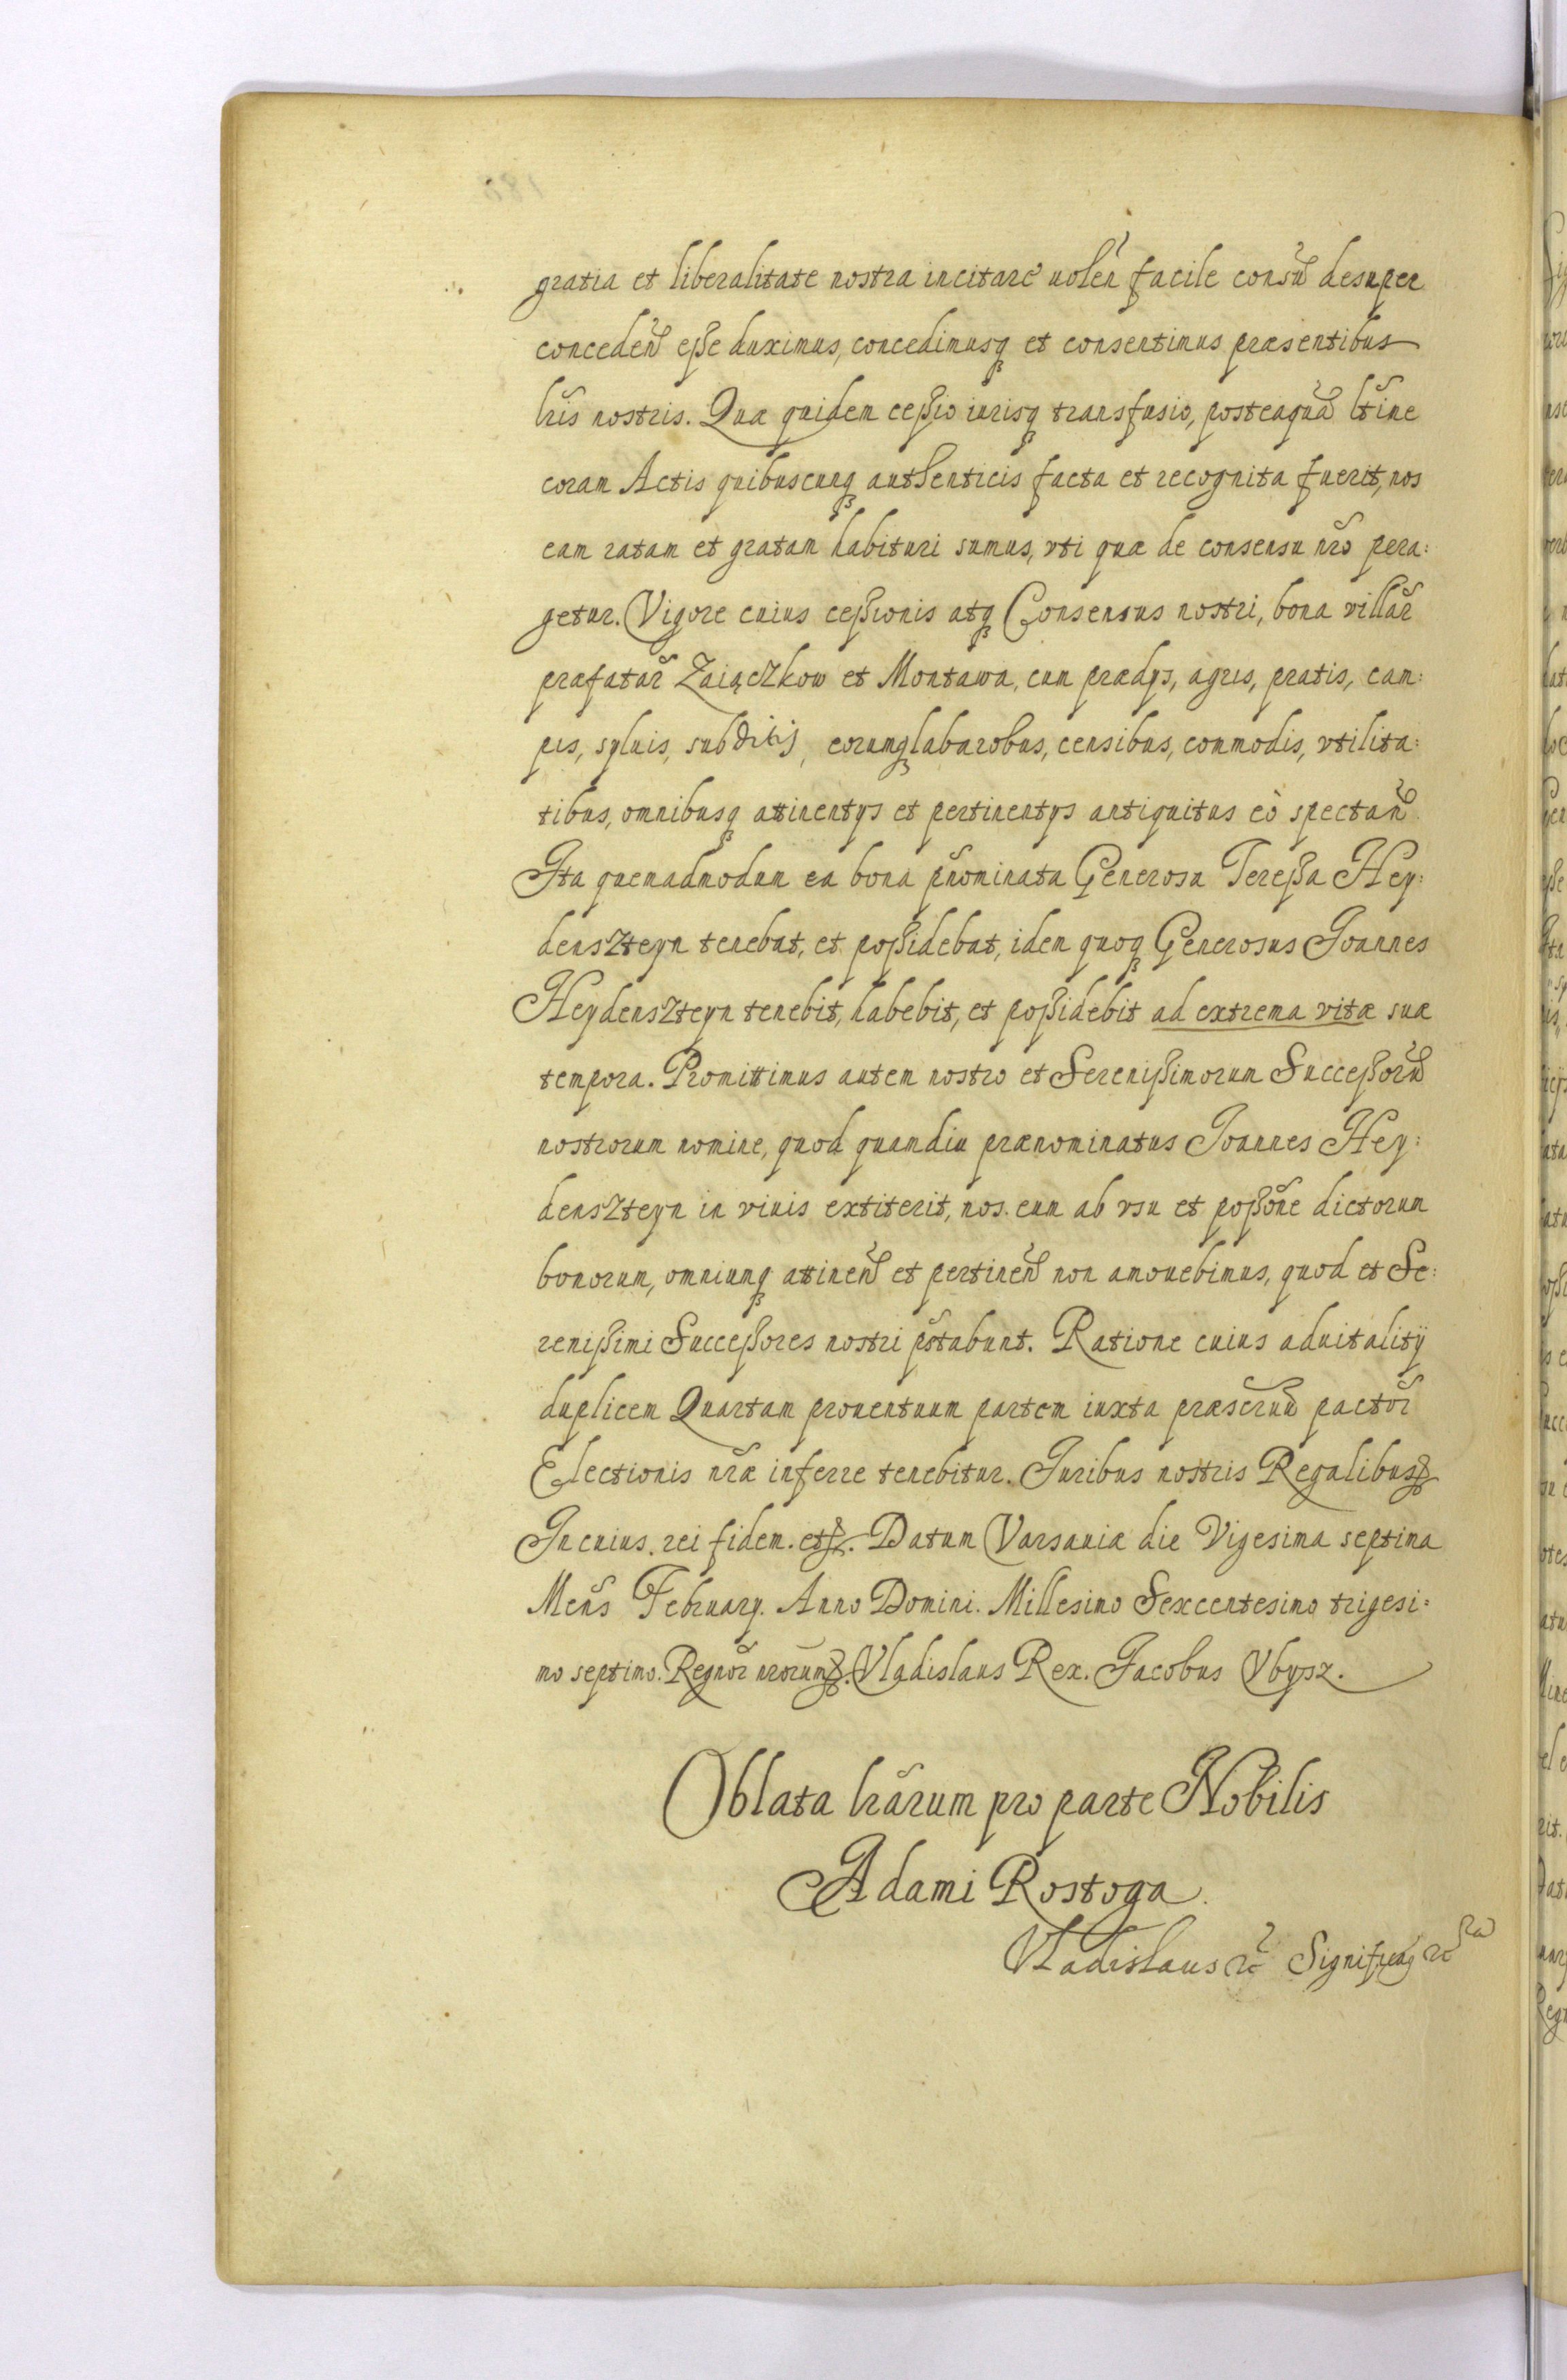 gratia et liberalitate nostra incitare uolen̄ facile consū desuper
conceden̄ eße duximus, concedimusq et consentimus præsentibus
lr̃is nostris. Quæ quidem ceßio iurisq transfusio, posteaquā ltīme
coram Actis quibuscunq authenticis facta et recognita fuerit, nos
eam ratam et gratam habituri sumus, vti quæ de consensu nr̃o pera:
getur. Vigore cuius ceßionis atq Consensus nostri, bona villar̃
præfatar̃ Zaiączkow et Montawa, cum prædys, agris, pratis, cam:
pis, syluis, subditis, eorumq labarobus, censibus, commodis, vtilita:
tibus, omnibusq attinentys et pertinentys antiquitus eò spectan̄
Ita quemadmodum ea bona pñominata Generosa Tereßa Hey:
denszteyn tenebat, et poßidebat, idem quoq Generosus Joannes
Heydenszteyn tenebit, habebit, et poßidebit ad extrema vitæ suæ
tempora. Promittimus autem nostro et Serenißimorum Succeßorū
nostrorum nomine, quod quamdiu prænominatus Joannes Hey:
denszteyn in viuis extiterit, nos eum ab vsu et poßõne dictorum
bonorum, omniumq attinen̄ et pertinen̄ non amouebimus, quod et Se:
renißimi Succeßores nostri pr̃stabunt. Ratione cuius aduitalitÿ
duplicem Quartam prouentuum partem iuxta præscrun̄ pactor̃
Electionis nr̃æ inferre tenebitur. Juribus nostris Regalibus &
In cuius rei fidem. et &. Datum Varsauiæ die Vigesima septima
Meñs February. Anno Domini. Millesimo Sexcentesimo trigesi:
mo septimo. Regnor̃ nrorum &. Vladislaus Rex. Jacobus Vbysz.
Oblata lr̃arum pro parte Nobilis
Adami Rostoga.
Vladislaus &c Significaq &c